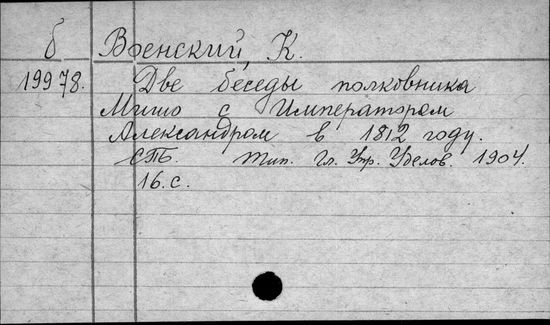 б Военский, К.
19978. Две беседы полковника
Мишо с Императором
Александром в 1812 году.
СПБ. Тип. Гл. Упр. Уделов. 1904.
16.с.